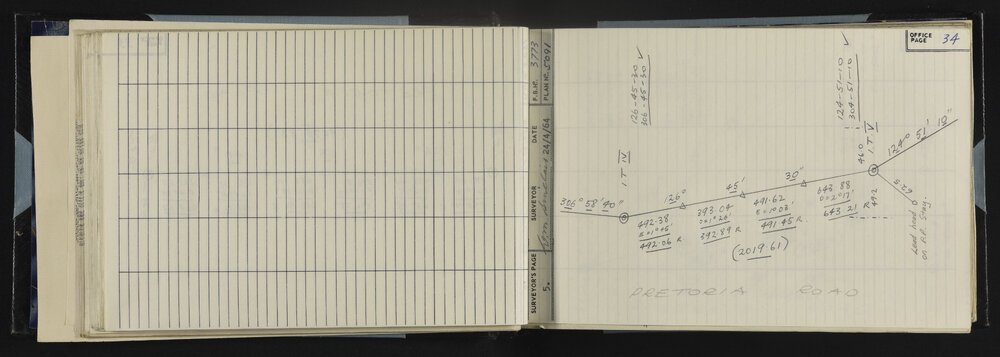 OFFICE PAGE 34
F.B. Nº. 3773
PLAN Nº. 5091
DATE 24/4/64
SURVEYOR
SURVEYOR'S PAGE 5.
126-45-30 ✓
306-45-30
124-51-10 ✓
304-51-10
I.T IV
I.T V
460
124° 51' 10"
306° 58' 40"
126° 45' 30"
492.38
492.06 R
393.04
392.89 R
491.62
491.45 R
643.88
643.21 R
(2019.61)
49.2
62.5
Lead head
on P.P. Stay.
PRETORIA ROAD